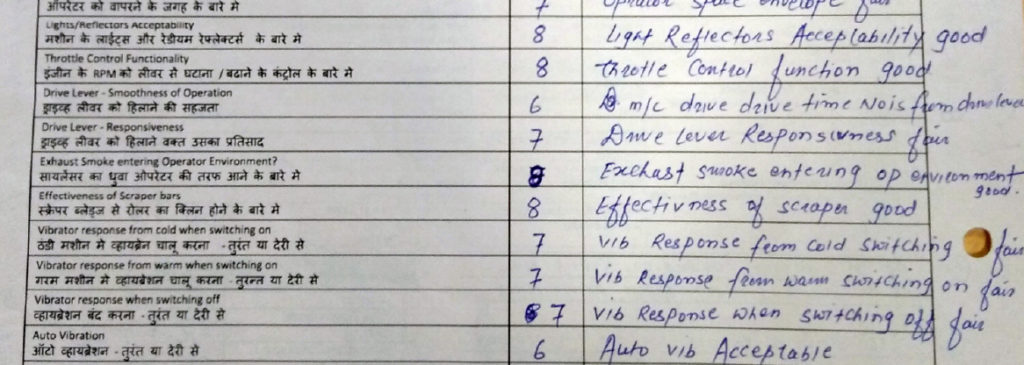 ऑपरेटर को वापरने के जगह के बारे मे 7 Operator space envelope fair
Lights/Reflectors Acceptability
मशीन के लाईट्स और रेडीयम रेफ्लेक्टर्स के बारे मे 8 Light Reflectors Acceptability good
Throttle Control Functionality
इंजीन के RPM को लीवर से घटाना / बढाने के कंट्रोल के बारे मे 8 throtle Control function good
Drive Lever - Smoothness of Operation
ड्राइव्ह लीवर को हिलाने की सहजता 6 m/c drive drive time Nois from drive lever
Drive Lever - Responsiveness
ड्राइव्ह लीवर को हिलाने वक्त उसका प्रतिसाद 7 Drive Lever Responsivness fair
Exhaust Smoke entering Operator Environment?
सायलेंसर का धुवा ओपरेटर की तरफ आने के बारे मे 8 Exchast smoke entering op environment good.
Effectiveness of Scraper bars
स्क्रेपर ब्लेड्ज से रोलर का क्लिन होने के बारे मे 8 Effectivness of scraper good
Vibrator response from cold when switching on
ठंडी मशीन मे व्हायब्रेन चालू करना - तुरंत या देरी से 7 Vib Response from cold switching fair
Vibrator response from warm when switching on
गरम मशीन मे व्हायब्रेशन चालू करना - तुरन्त या देरी से 7 Vib Response from warm switching on fair
Vibrator response when switching off
व्हायब्रेशन बंद करना - तुरंत या देरी से 7 Vib Response when switching off fair
Auto Vibration
ऑटो व्हायब्रेशन - तुरंत या देरी से 6 Auto vib Acceptable